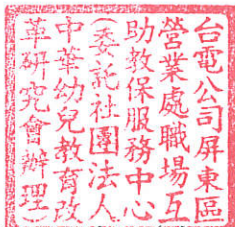 台電公司屏東區
營業處職場互
助教保服務中心
(委託社團法人
中華幼兒教育改
革研究會辦理)